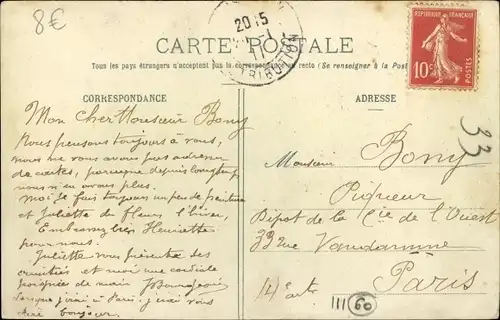 8€
20:5
DISTRIBUTION
REPUBLIQUE FRANÇAISE
10c
POSTES
CARTE POSTALE
Tous les pays étrangers n'acceptent pas la correspondance au recto (Se renseigner à la Poste
CORRESPONDANCE
ADRESSE
Mon Cher Monsieur Bony
Nous pensons toujours à vous,
nous ne vous avons pas adressé
de cartes, parceque depuis longtemps
nous n'en avons plus.
Moi je fais toujours un peu de peinture
et Juliette des fleurs l'hiver,
Embrassez bien Henriette
pour nous.
Juliette vous présente ses
amitiés et moi une cordiale
poignée de main
Lorsque j'irai à Paris, j'irai vous
dire bonjour.
Monsieur Bony
Piqueur
Dépôt de la Cie de l'Ouest
33 rue Vandamme
Paris
14e arrt
33
111 60